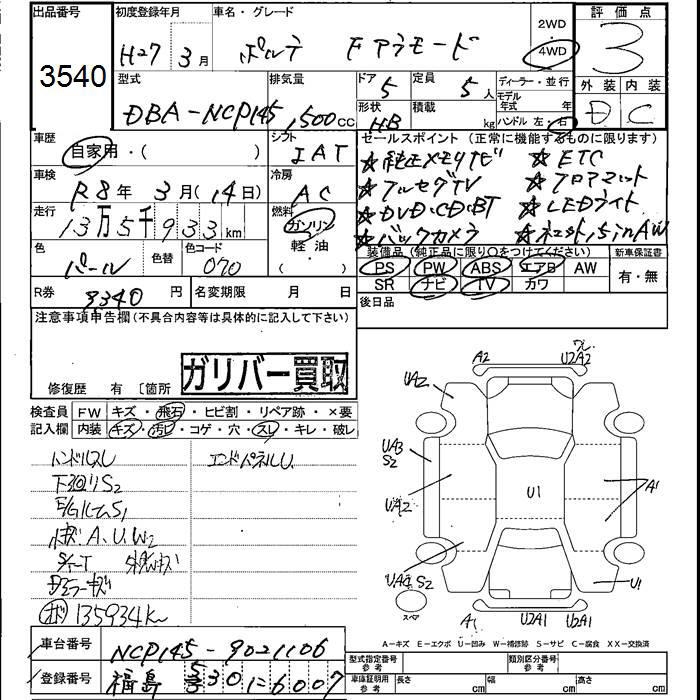 出品番号 初度登録年月 車名・グレード 2WD 評価点
3540 H27年 3月 ポルテ F アラモード 4WD 3
型式 排気量 ドア 定員 ディーラー・並行 外装 内装
DBA-NCP145 1,500cc 5 5人 モデル年式 年 D C
形状 積載 kg ハンドル 左・右
HB
車歴 シフト セールスポイント(正常に機能するものに限ります)
自家用・( ) IAT ☆純正メモリナビ ☆ETC
車検 冷房 ☆フルセグTV ☆フロアマット
R8年 3月(14日) AC ☆DVD・CD・BT ☆LEDライト
走行 燃料 ☆バックカメラ
13万5千933km ガソリン 軽油・( )
色 色替 色コード 装備品(純正品に限り○をつけてください) 新車保証書
パール 070 PS PW ABS エアB AW 有・無
SR ナビ TV カワ
R券 9340円 名変期限 月 日 後日品
注意事項申告欄(不具合内容等は具体的に記入して下さい)
ガリバー買取
修復歴 有 〔箇所
検査員記入欄 FW キズ・飛石・ヒビ割・リペア跡・×要
内装 キズ・汚レ・コゲ・穴・スレ・キレ・破レ
ハンドルスレ エンドパネルU
下回りS2
A、U、W2
ドアミラーキズ
135934K
A2 U2A2
UA2
UA3 S2
UA2
U1
A1
U1
スペア
A1 U2A1 U2A1
A-キズ E-エクボ U-凹み W-補修跡 S-サビ C-腐食 XX-交換済
車台番号 NCP145-9021106
型式指定番号 参考 類別区分番号 参考
登録番号 福島 530
車庫証明 参考 長さ cm 幅 cm 高さ cm